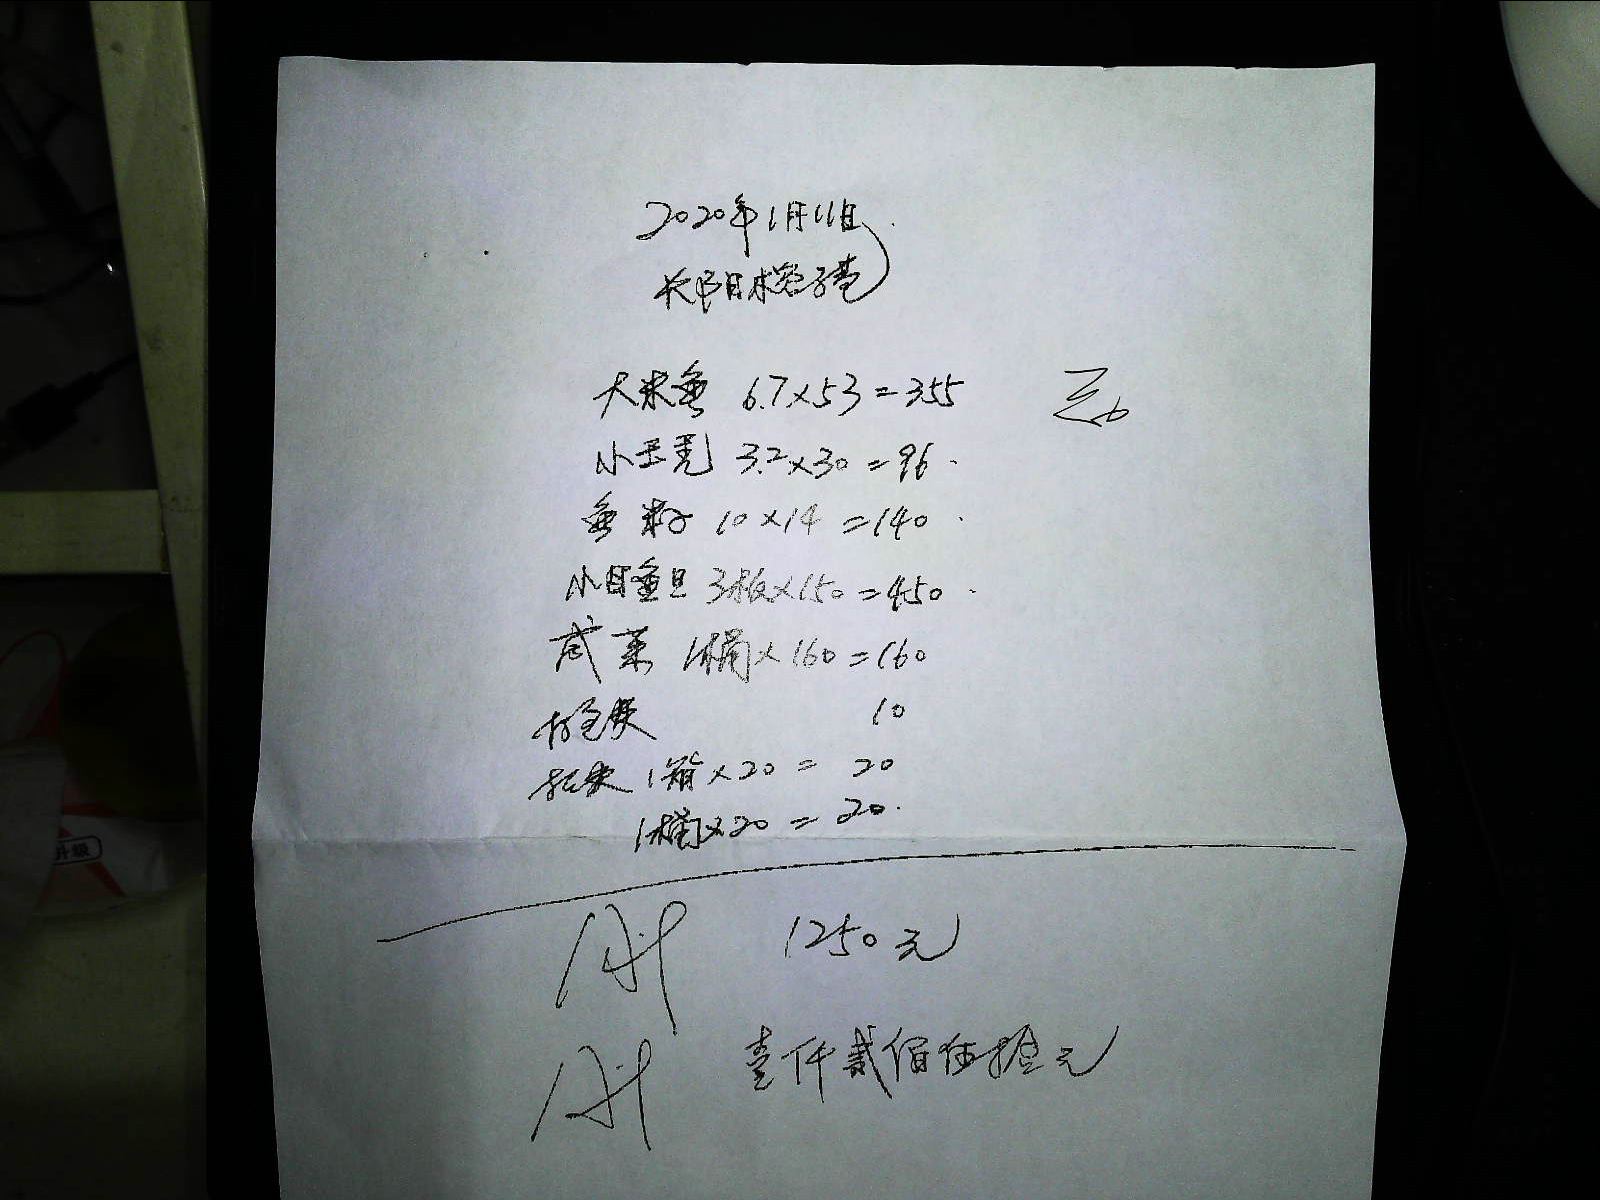 2020年1月11日
大米鱼 6.7×53=355
小王 3.2×30=96.
鱼籽 10×14=140.
小目鱼旦 3板×150=450.
咸菜 1桶×160=160
10
1箱×20= 20
1桶×20=20.
共 1250元
共 壹仟贰佰伍拾元
升级